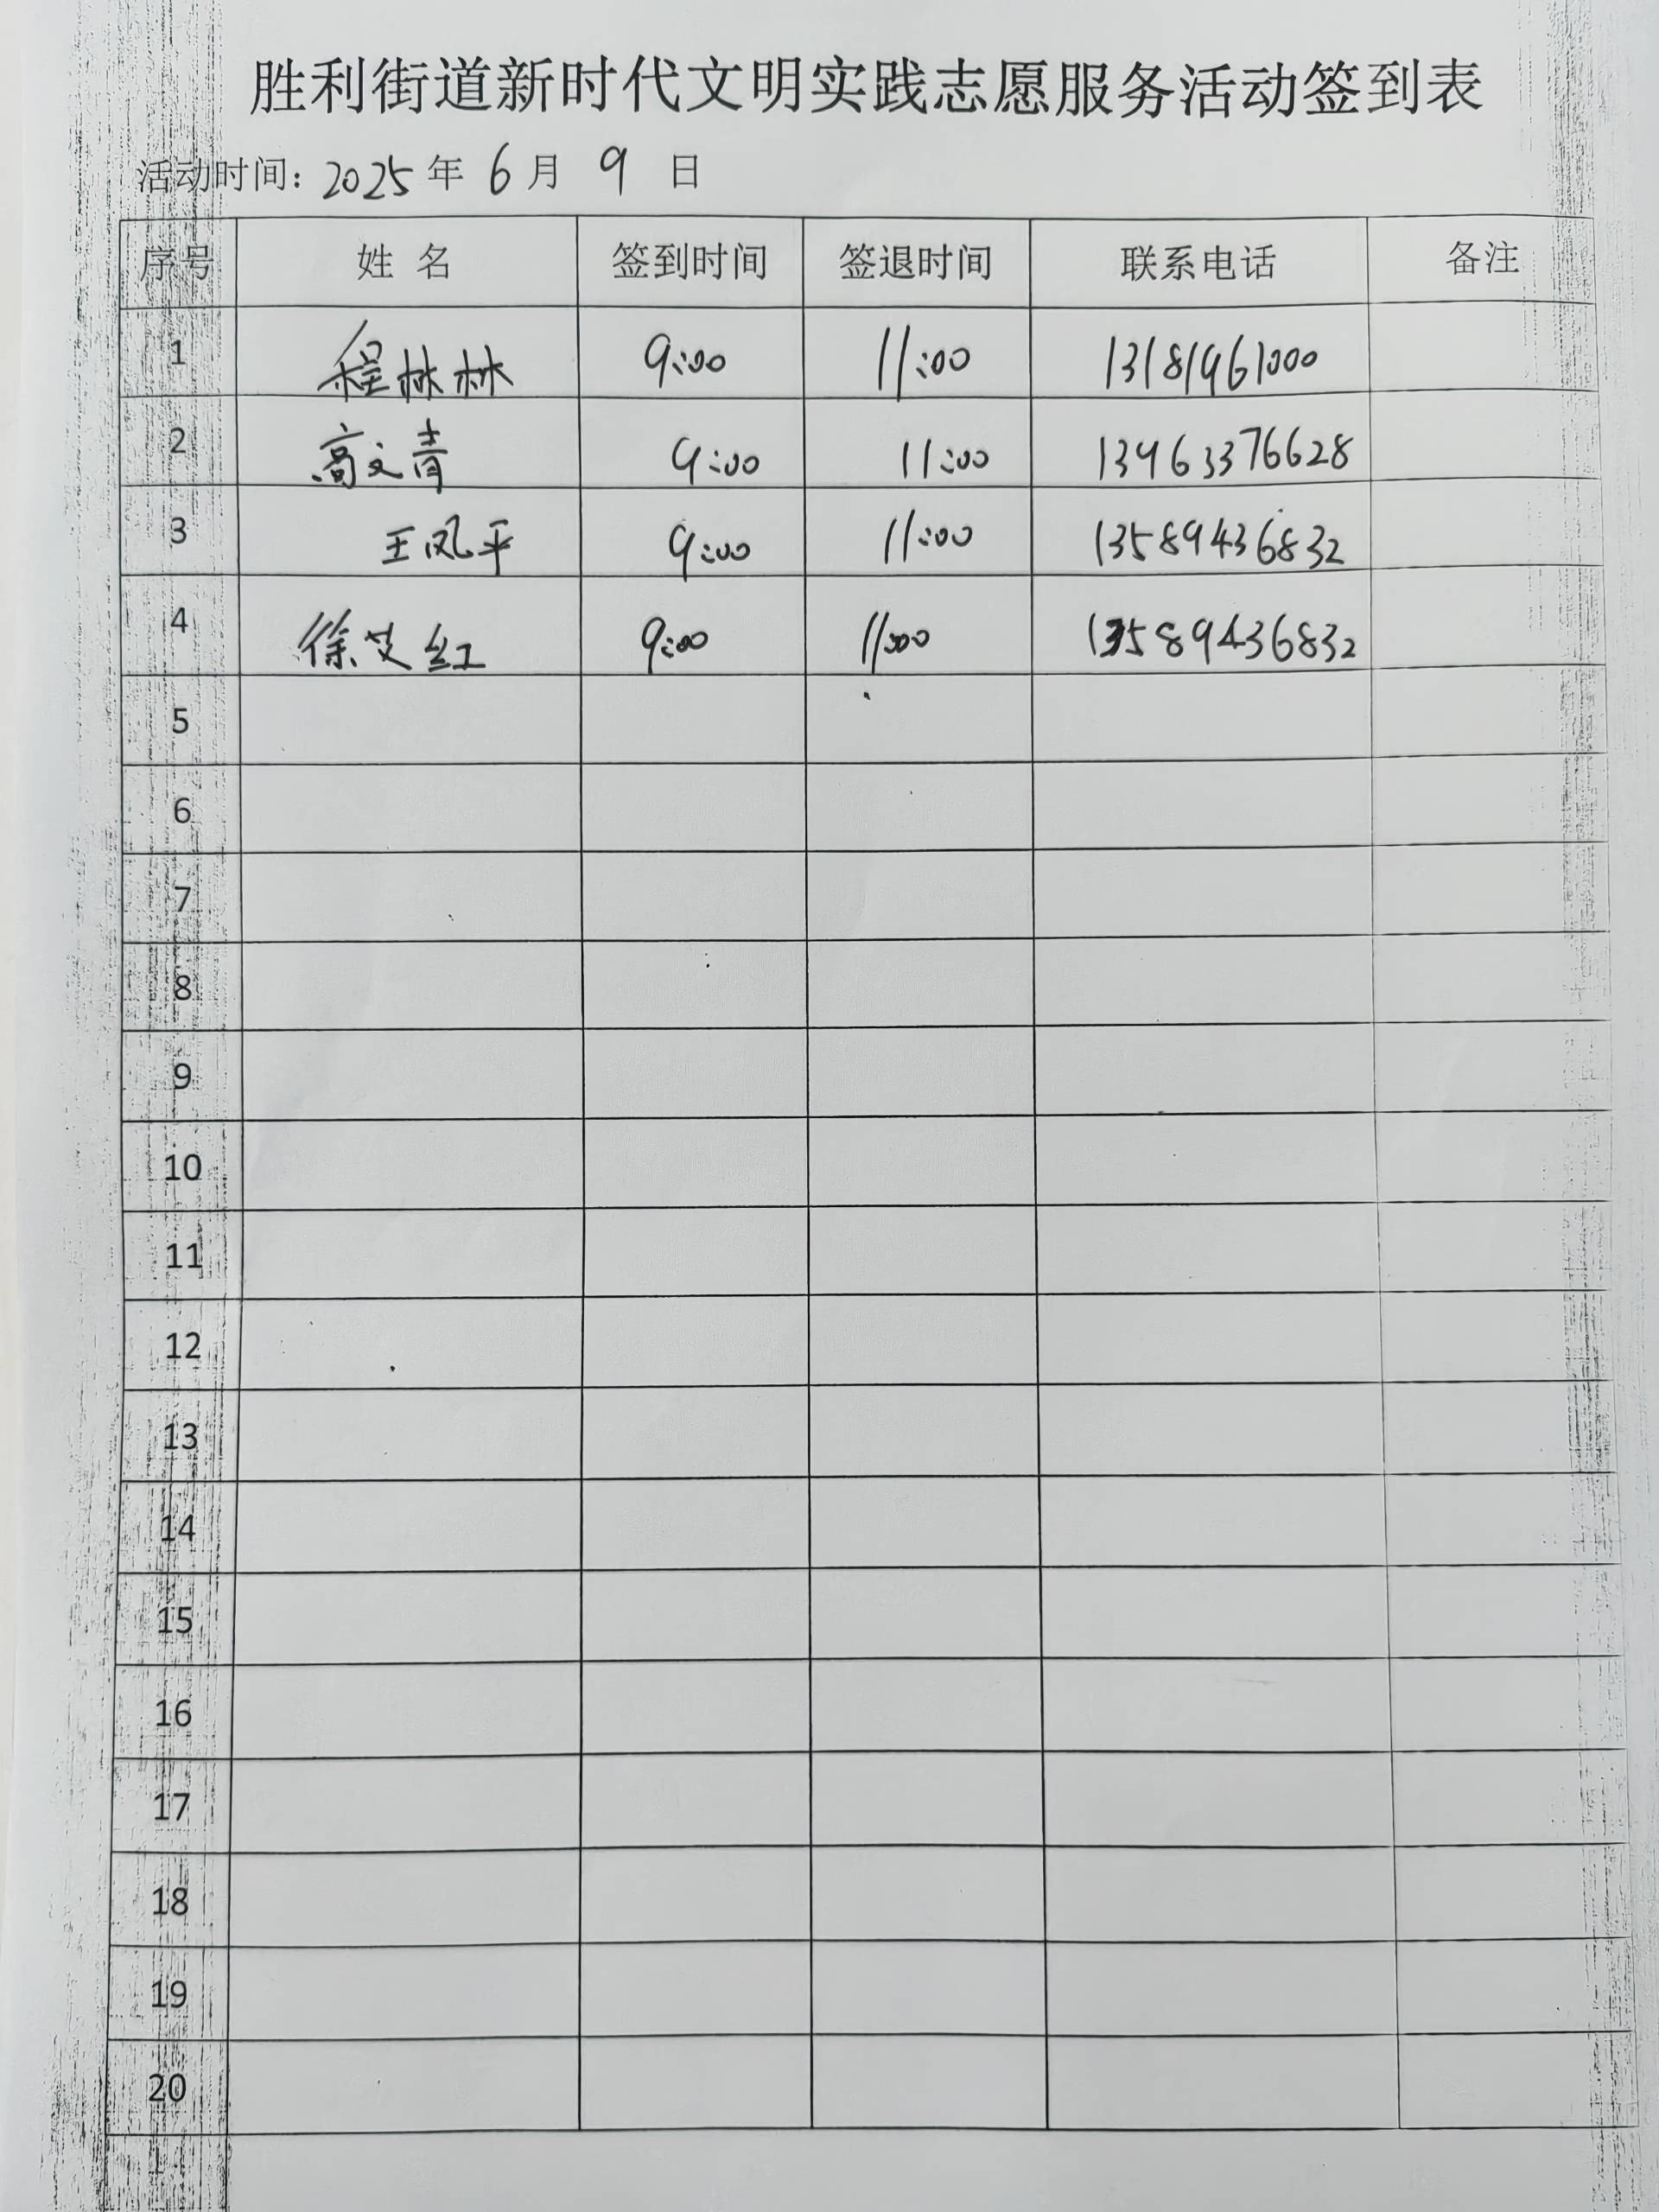 胜利街道新时代文明实践志愿服务活动签到表
活动时间: 2025 年 6 月 9 日
序号 姓 名 签到时间 签退时间 联系电话 备注
1 程林林 9:00 11:00 13181961000
2 高文青 9:00 11:00 13963376628
3 王凤平 9:00 11:00 13589436832
4 徐艾红 9:00 11:00 13589436832
5
6
7
8
9
10
11
12
13
14
15
16
17
18
19
20